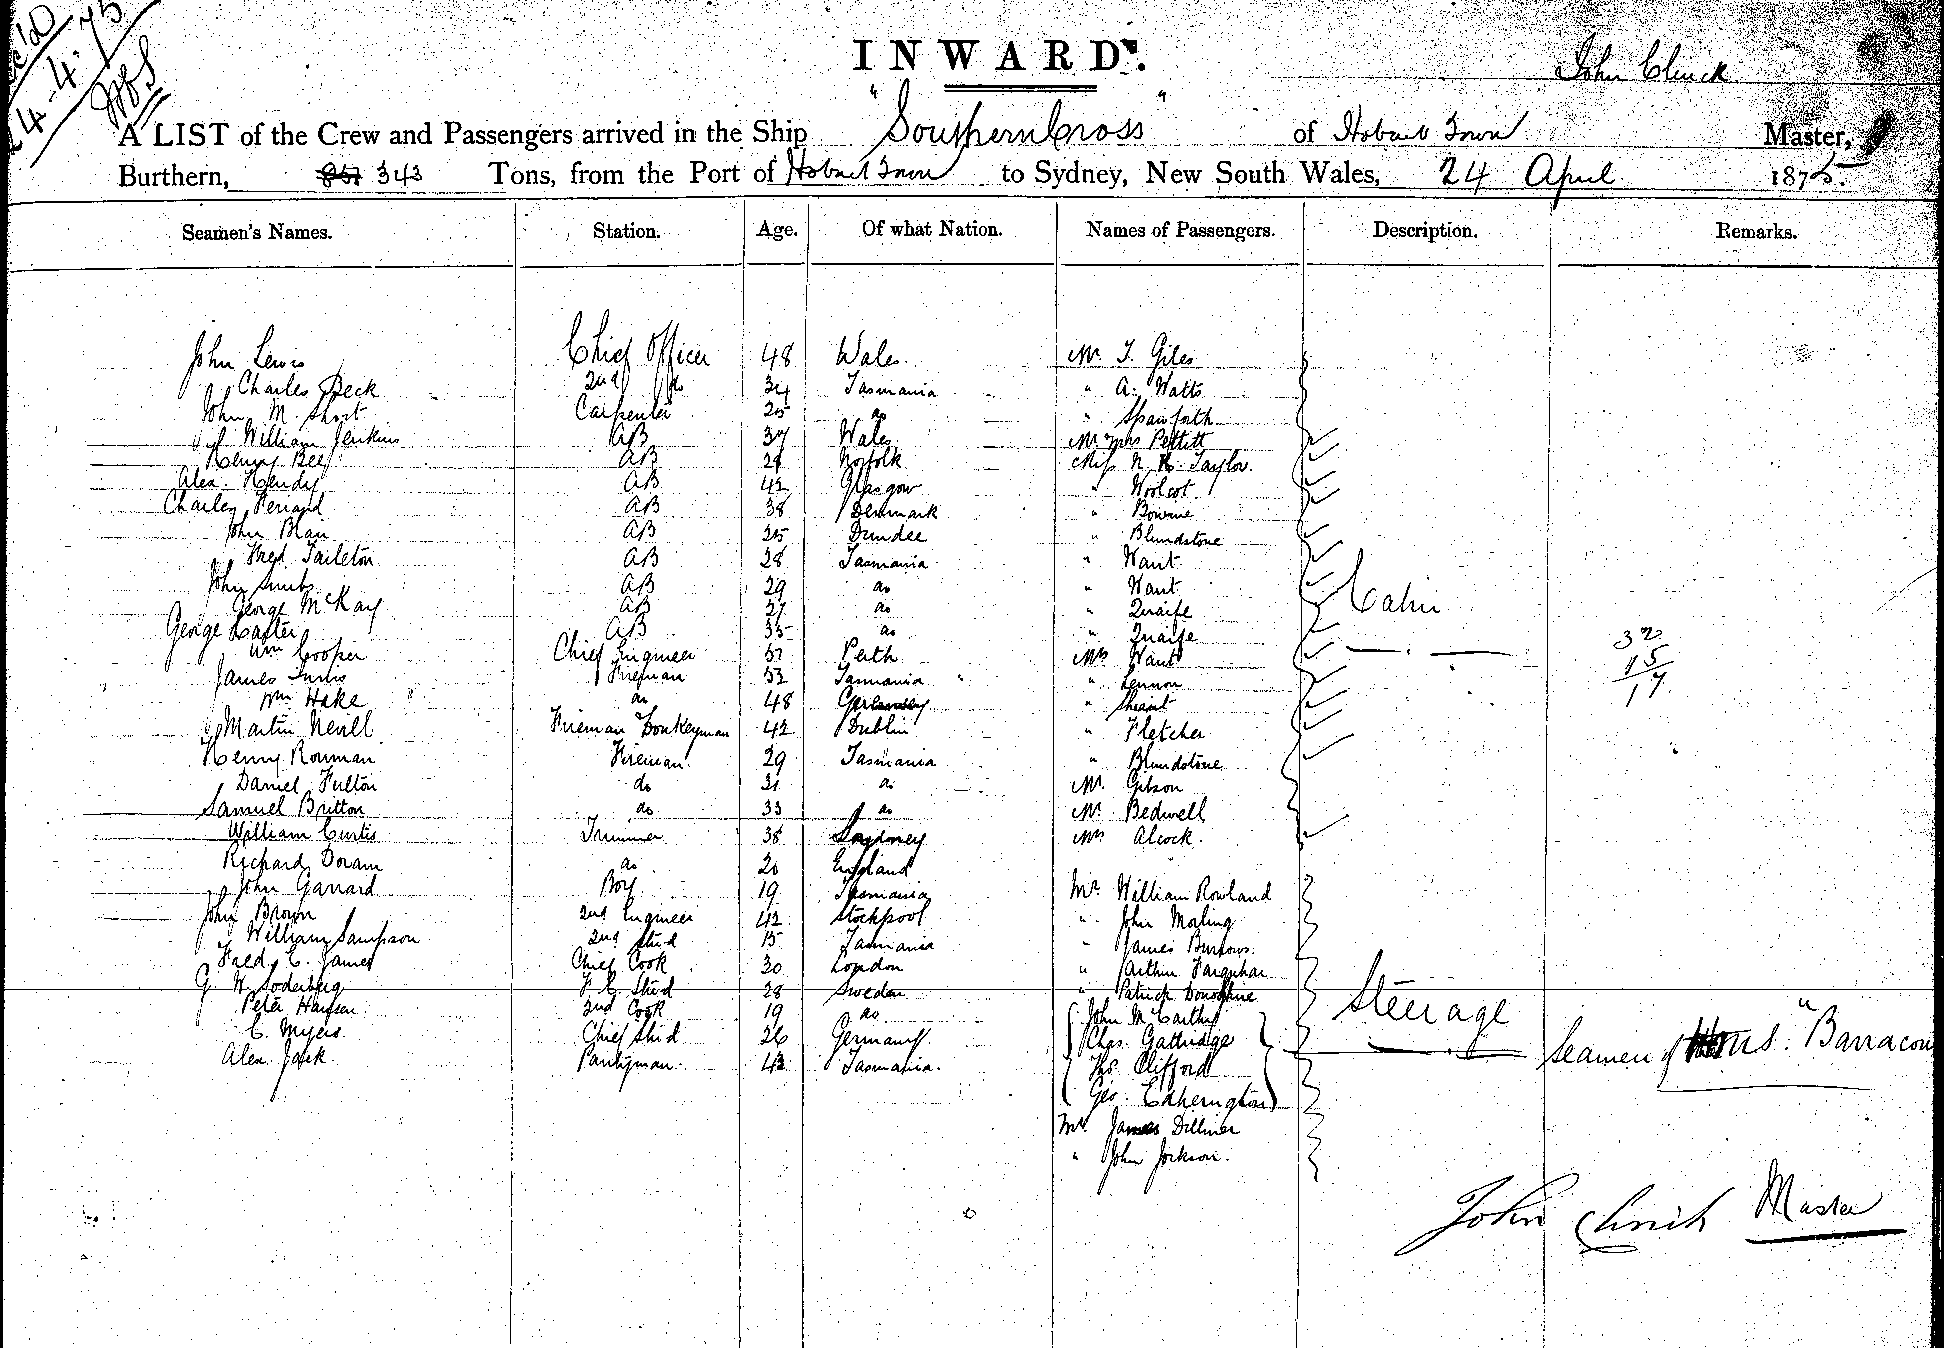 24-4-75
INWARD.
John Clinch
A LIST of the Crew and Passengers arrived in the Ship "Southern Cross" of Hobart Town Master,
Burthern, 343 Tons, from the Port of Hobart Town to Sydney, New South Wales, 24 April 1875.
Seamen's Names. Station. Age. Of what Nation. Names of Passengers. Description. Remarks.
John Lewis Chief Officer 48 Wales Mr. T. Giles
Charles Beck 2nd do 34 Tasmania " A. Watts
John M. Short Carpenter 25 do " Spawforth
William Jenkins AB 37 Wales Mr & Mrs Pettitt
Henry Bee AB 29 Norfolk Miss N. K. Taylor
Alex. Hendy AB 42 Glasgow " Woolcot
Charley AB 38 Denmark " Bowne
John Blair AB 25 Dundee " Blundstone
Fred Tarleton AB 28 Tasmania " Want
John Smith AB 29 do " Want
George McKay AB 27 do " Quaife Cabin
George Carter AB 35 do " Quaife
Wm Cooper Chief Engineer 37 Perth Mrs Want
James Fireman 33 Tasmania " Lennon
Wm Hake do 48 " 
Martin Nevill Fireman Donkeyman 42 Dublin " Fletcher
Henry Rouman Fireman 29 Tasmania " Blundstone
Daniel Fulton do 31 do Mr. Gibson
Samuel Britton do 33 do Mr. Bedwell
William Curtis Trimmer 38 Sydney Mrs Alcock.
Richard Doram do 20 England
John Garrard Boy 19 Tasmania Mr. William Rowland
John Brown 2nd Engineer 42 Stockpool " John Morling
William Sampson 2nd Stud 15 Tasmania " James Burrows
Fred. C. James Chief Cook 30 London " Arthur Farquhar
G. W. Soderberg F. C. Stud 28 Sweden " Patrick Donoghue
Peter Hansen 2nd Cook 19 do John McCarthy Steerage
C. Myers Chief Stud 26 Germany Chas. Gattridge Seamen of HMS. "Barracou
Alex. Jack Pantryman. 43 Tasmania. Thos Clifford
Geo. Etherington
Mr. James Dillmer
" John Jackson.
32
15
17
John Clinch Master